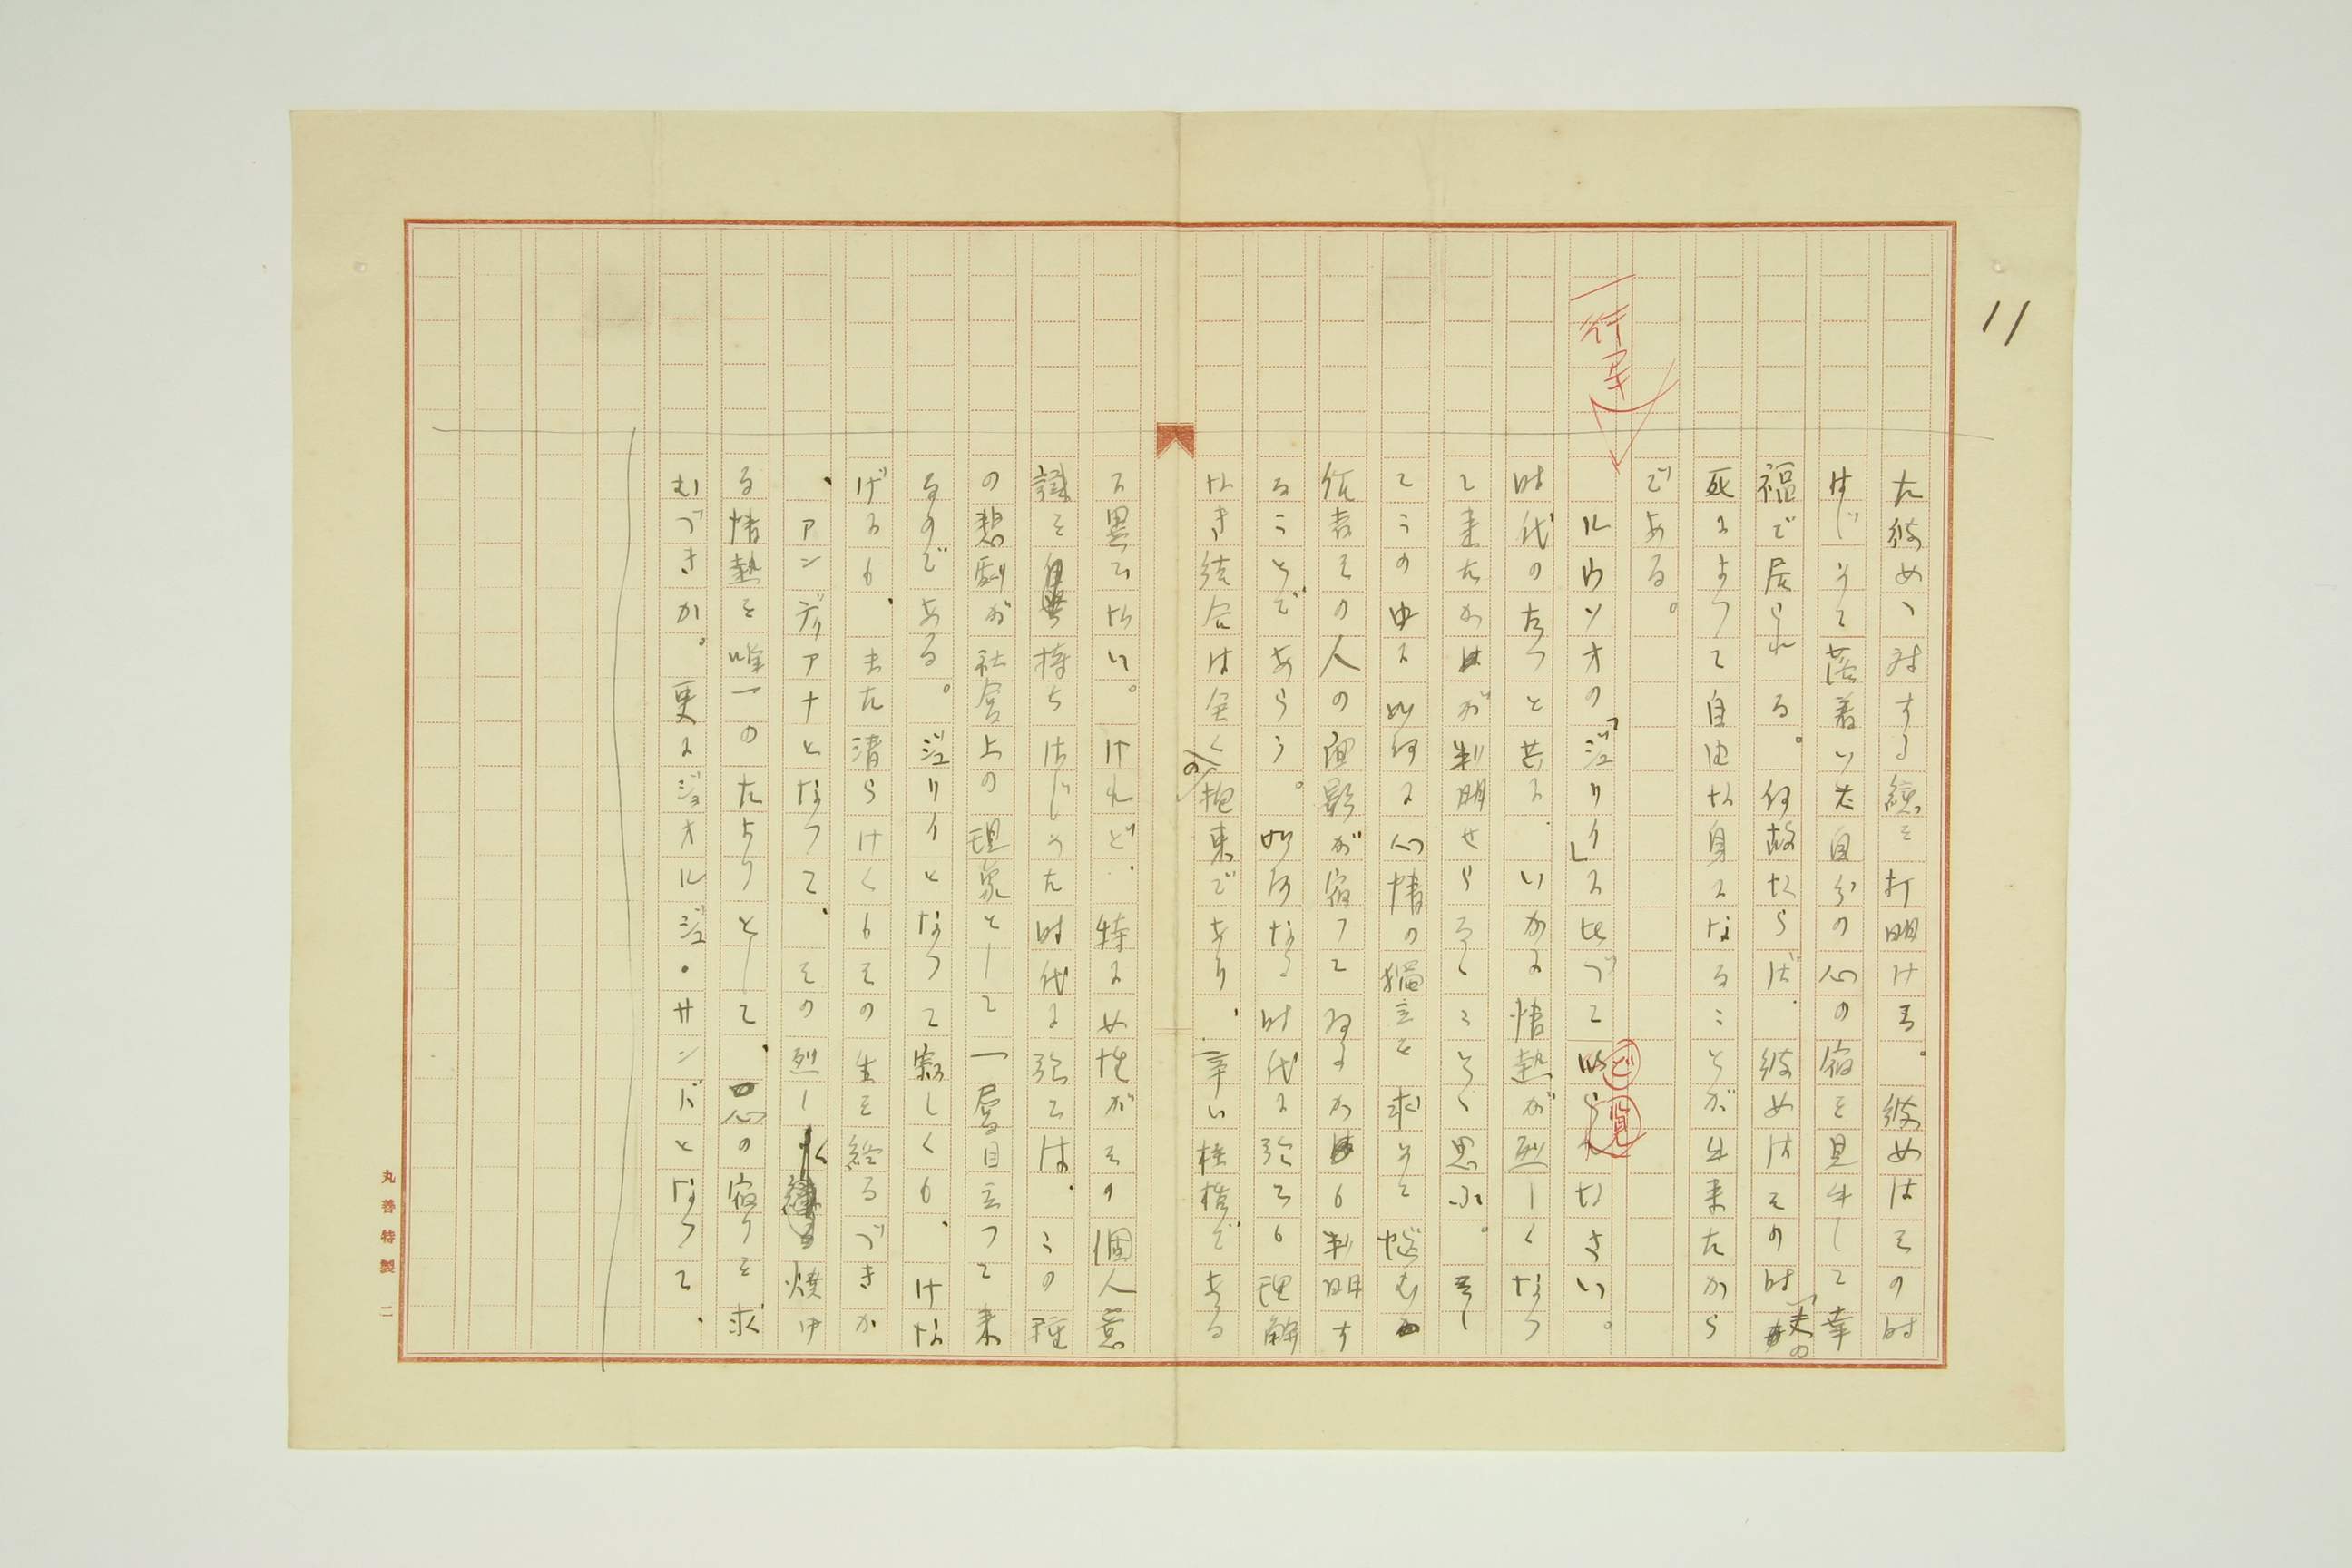 11
た彼女に対する總を打明ける。彼女はその時
はじめて落着いた自分の心の宿を見出して幸
福で居られる。何故ならば、彼女はその時夫の
死によつて自由な身になることが出来たから
である。
一行アキ
ルウソオの「ジュリイ」に比べて御覧なさい。
時代のたつと共に、いかに情熱が烈しくなつ
て来たかが判明せらるゝことゝ思ふ。そし
てこの中に如何に心情の獨立を求めて悩むか
作者その人の面影が宿つてゐるかも判明す
ることであらう。如何なる時代に於ても理解
なき結合は全くの拘束であり、辛い桎梏である
に異ひない。けれど、特に女性がその個人意
識を持ちはじめた時代に於ては、この種
の悲劇が社会上の現象として一層目立つて来
るのである。ジュリイとなつて寂しくも、けな
げにも、また清らけくもその生を終るべきか
、アンディアナとなつて、その烈しく燃ゆ
る情熱を唯一のたよりとして、心の宿りを求
むべきか。更にジョオルジュ・サンドとなつて、
丸善特製 二